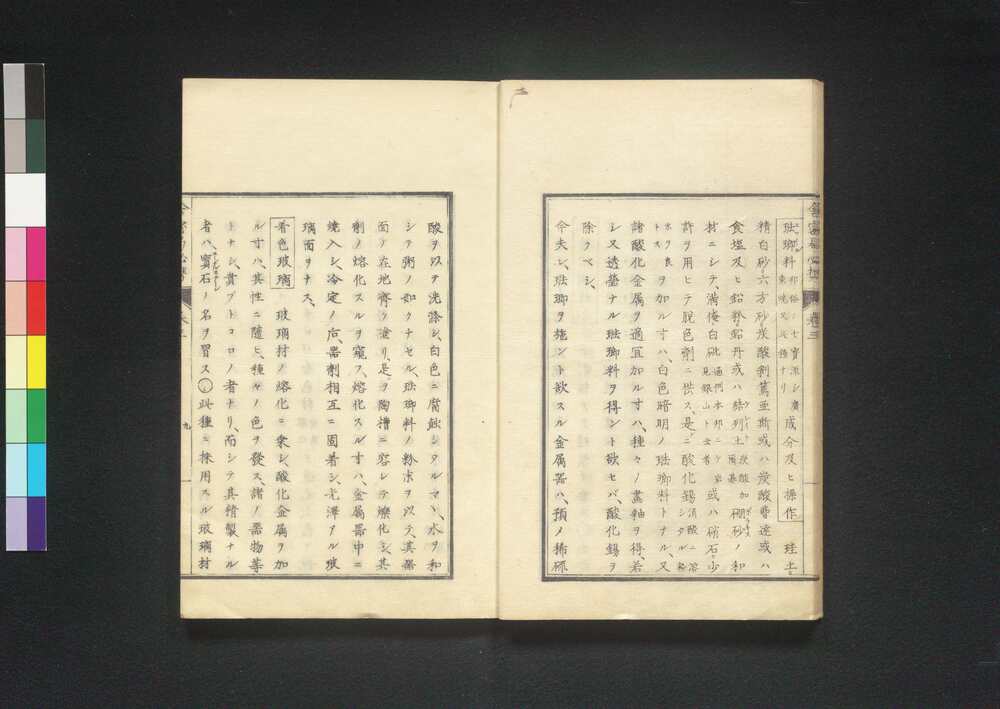 琺瑯料 邦俗ノ七寶流シ廣東焼又此種ナリ 成分及ヒ操作 硅土
精白砂六方砂炭酸剥篤亜斯或ハ炭酸曹達或ハ
食塩及ヒ鉛粉鉛丹或ハ 結列土 炭酸加爾基 硼砂ノ和
材ニシテ、満俺白砒 或ハ硝石少
許ヲ用ヒテ脱色剤ニ供ス、是ニ酸化錫
ホク良 ヲ加ル寸ハ、白色暗明ノ琺瑯料トナル、又
諸酸化金属ヲ適宜加ル寸ハ、種々ノ畫釉ヲ得、若
シ又透瑩ナル琺瑯料ヲ得ント欲セバ、酸化錫ヲ
除クベシ、
今夫レ琺瑯ヲ施ント欲スル金属器ハ、預ノ稀硫
酸ヲ以テ洗滌シ、白色ニ腐蝕シタルマヽ、水ヲ和
シテ粥ノ如クナセル、琺瑯料ノ粉末ヲ以テ、其器
面ヲ在地齊ク塗リ、是ヲ陶槽ニ容レテ爍化シ、其
劑ノ熔化スルヲ窺フ、熔化スル寸ハ、金属器中ニ
焼入シ、冷定ノ后、器劑相互ニ固着シ、光澤アル玻
璃面ヲナス、
着色玻璃 玻璃材ノ熔化ニ乗シ、酸化金属ヲ加
ル寸ハ、其性ニ随ヒ、種々ノ色ヲ發ス、諸ノ器物等
トナシ、貴ブトコロノ者ナリ、而シテ其精製ナル
者ハ、寳石ノ名ヲ冒ス○此種ニ採用スル玻璃材
九